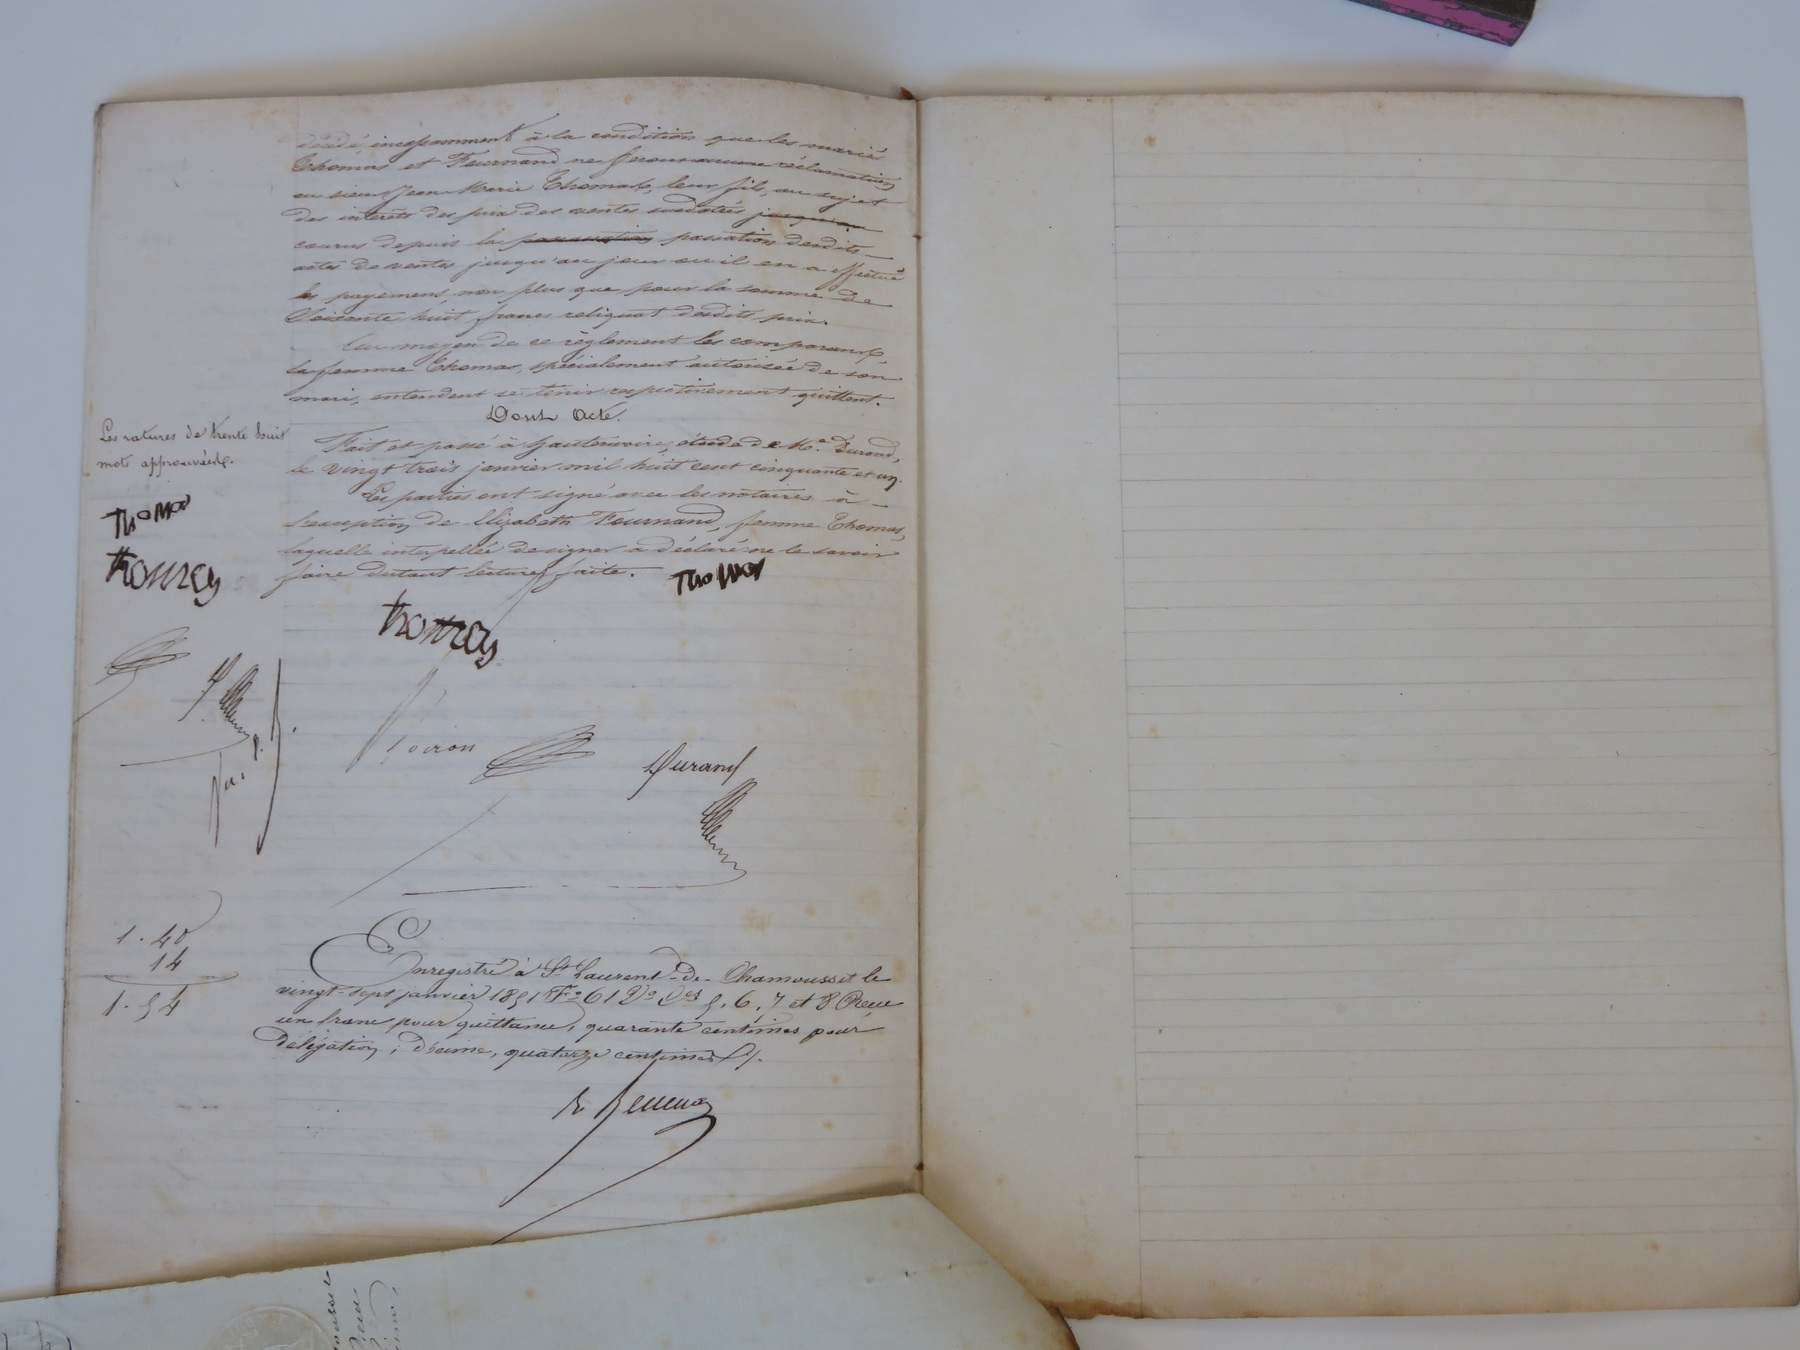 décidé, incessamment à la condition que les mariés
Thomas et Fournand ne feront aucune réclamation
au sieur Jean Marie Thomas, leur fils, au sujet
des intérêts des prix des ventes susdatées jusqu'au
courus depuis la passation desdits
actes de ventes jusqu'au jour où il en a effectué
les payemens, non plus que pour la somme de
Soixante huit francs reliquat desdits prix.
Au moyen de ce règlement les comparants,
la femme Thomas, spécialement autorisée de son
mari, entendent se tenir respectivement quittent.
Dont Acte.
Fait et passé à hauterivoire, étude de Me. Durand,
le vingt trois janvier mil huit cent cinquante et un.
Les parties ont signé avec les notaires à
l'exception de Elizabeth Fournand, femme Thomas,
laquelle interpellée de signer a déclaré ne le savoir
faire dutout lecture faite.
Les ratures de trente huit
mots approuvées.
Thomas
thomas
Thomas
thomas
Durand
1.40
14
1.54
Enregistré à St Laurent-de-Chamousset le
vingt-sept janvier 1851 Fo 61 Vo Ces 5, 6, 7 et 8 Reçu
un franc pour quittance, quarante centimes pour
délégation; décime, quatorze centimes